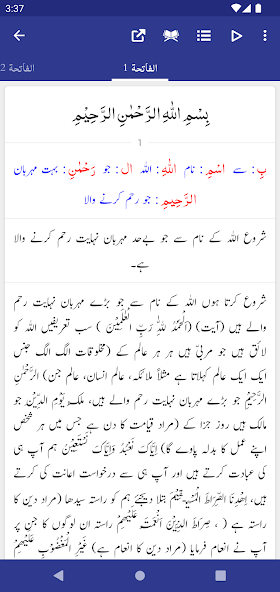 3:37
الفاتحة 1
الفاتحة 2
بِسْمِ اللّٰهِ الرَّحْمٰنِ الرَّحِيْمِ
1
بِ: سے اسْمِ: نام اللّٰهِ: اللہ ال: جو رَحْمٰنِ: بہت مہربان
الرَّحِيْمِ: جو رحم کرنے والا
شروع اللہ کے نام سے جو بےحد مہربان نہایت رحم کرنے والا
ہے۔
شروع کرتا ہوں اللہ کے نام سے جو بڑے مہربان نہایت رحم
والے ہیں (آیت) (اَلْحَمْدُ لِلّٰهِ رَبِّ الْعٰلَمِيْنَ) سب تعریفیں اللہ کو
لائق ہیں جو مربی ہیں ہر ہر عالم کے (مخلوقات الگ الگ جنس
ایک ایک عالم کہلاتا ہے مثلاً ملائکہ، عالم انسان، عالم جن) الرَّحْمٰنِ
الرَّحِيْمِ جو بڑے مہربان نہایت رحم والے ہیں، مٰلِكِ يَوْمِ الدِّيْنِ جو
مالک ہیں روز جزا کے (مراد قیامت کا دن ہے جس میں ہر شخص
اپنے عمل کا بدلہ پاوے گا) اِيَّاكَ نَعْبُدُ وَاِيَّاكَ نَسْتَعِيْنُ ہم آپ ہی
کی عبادت کرتے ہیں اور آپ ہی سے درخواست اعانت کی کرتے
ہیں، اِهْدِنَا الصِّرَاطَ الْمُسْتَقِيْمَ بتلا دیجئے ہم کو راستہ سیدھا (مراد دین کا
راستہ ہے) ، صِرَاطَ الَّذِيْنَ اَنْعَمْتَ عَلَيْهِمْ راستہ ان لوگوں کا جن پر
آپ نے انعام فرمایا (مراد دین کا انعام ہے) غَيْرِ الْمَغْضُوْبِ عَلَيْهِمْ